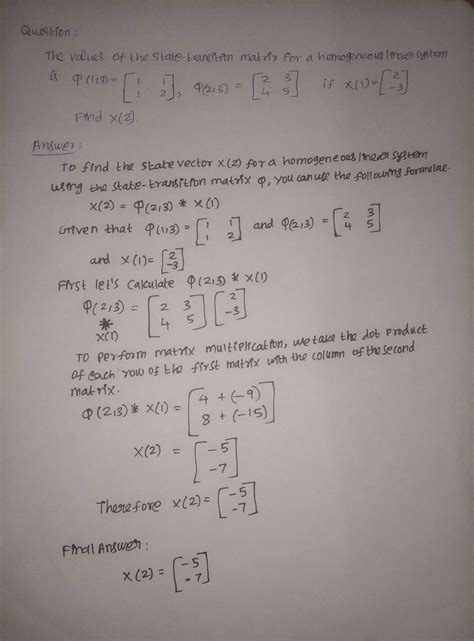 Question:
The values of the state-transition matrix for a homogeneous linear system
is φ(1,3) = [1 1; 1 2], φ(2,3) = [2 3; 4 5] if x(1) = [2; -3]
Find x(2)
Answer:
To find the state vector x(2) for a homogeneous linear system
using the state-transition matrix φ, you can use the following formulae.
x(2) = φ(2,3) * x(1)
Given that φ(1,3) = [1 1; 1 2] and φ(2,3) = [2 3; 4 5]
and x(1) = [2; -3]
First let's calculate φ(2,3) * x(1)
φ(2,3) * x(1) = [2 3; 4 5] [2; -3]
To perform matrix multiplication, we take the dot product
of each row of the first matrix with the column of the second
matrix.
φ(2,3) * x(1) = [4 + (-9); 8 + (-15)]
x(2) = [-5; -7]
Therefore x(2) = [-5; -7]
Final Answer:
x(2) = [-5; -7]